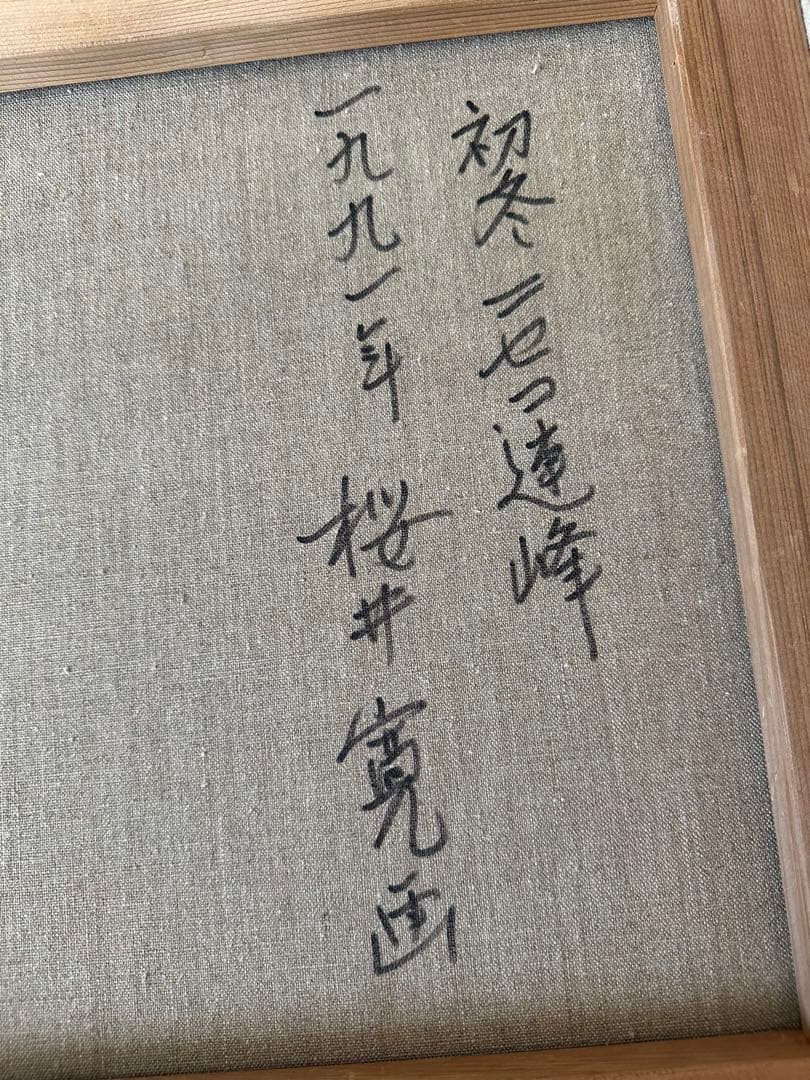 初冬ニセコ連峰
一九九一年 桜井寛画